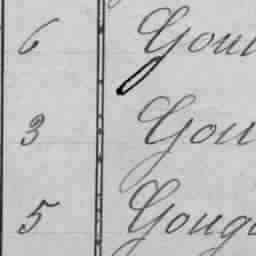 6 Gou
3 Gou
5 Goug